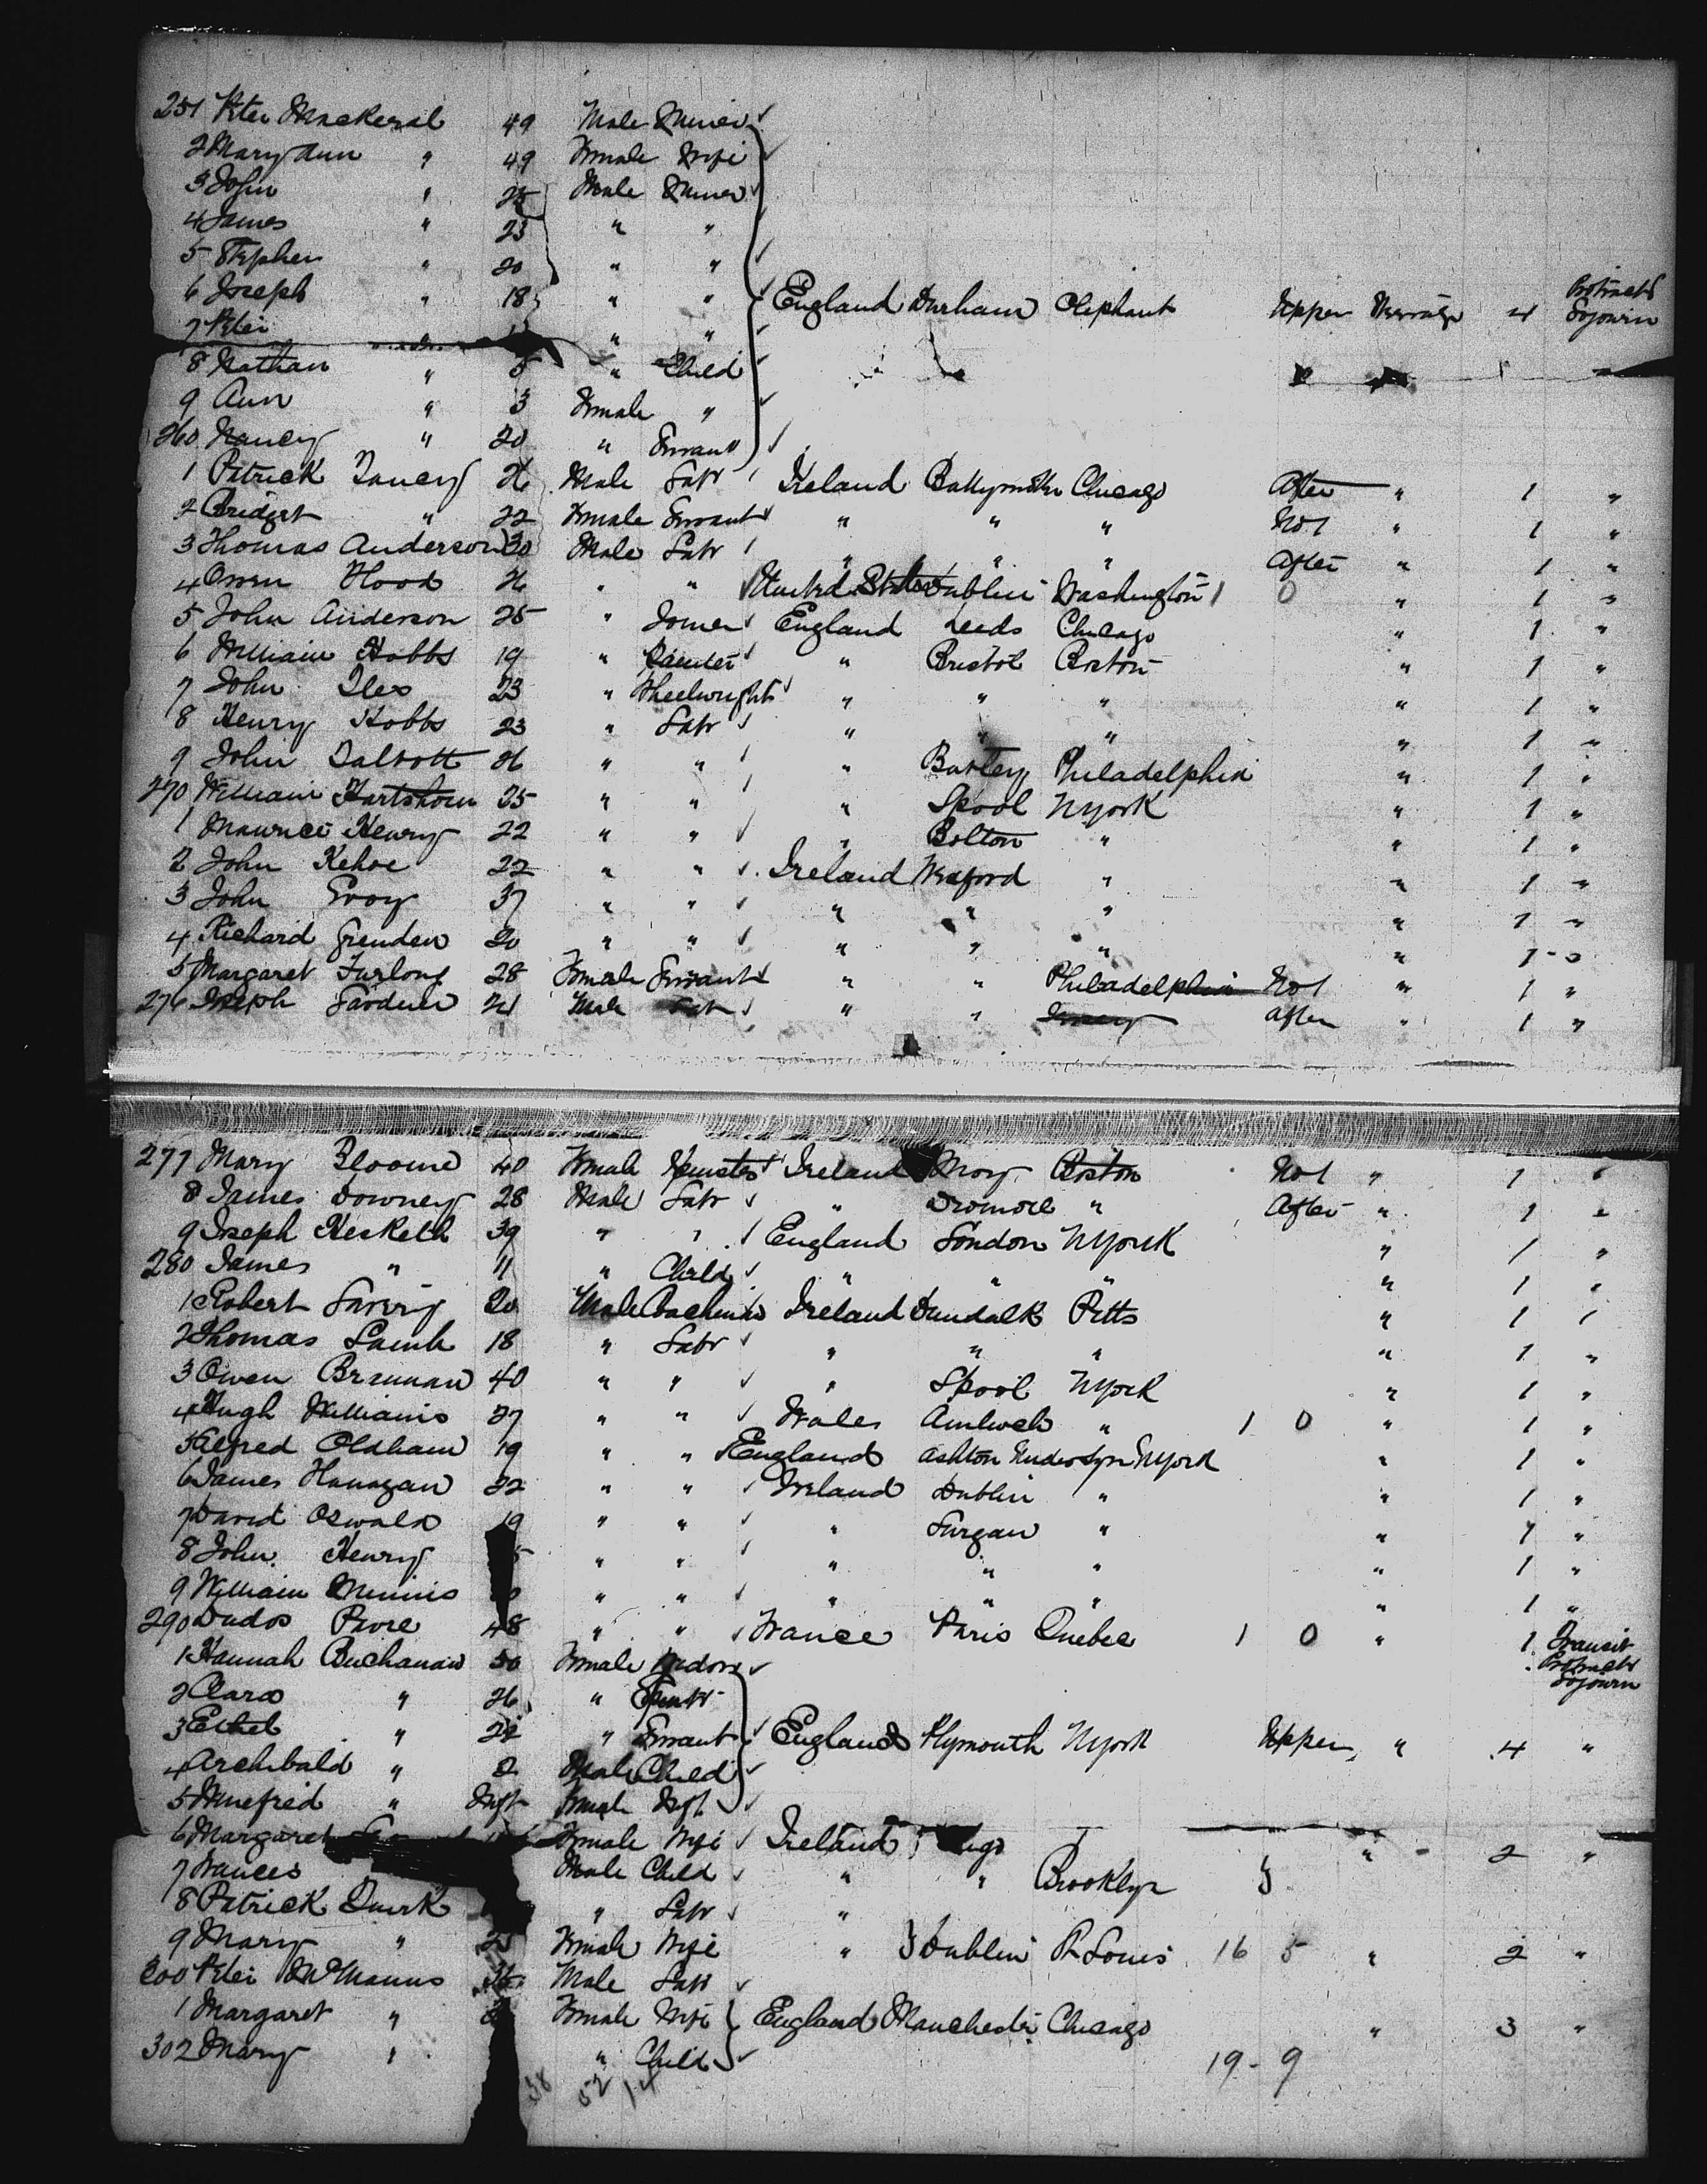 251 Peter Mackeral 49 Male Miner
2 Mary Ann " 49 Female Wife
3 John " 25 Male Miner
4 James " 23 " "
5 Stephen " 20 " "
6 Joseph " 18 " " England Durham Oliphant Upper Steerage 4 Protracted Sojourn
7 Peter " " "
8 Nathan " 5 " Child
9 Ann " 3 Female "
260 Nancy " 20 " Servant
1 Patrick 26 Male Labr Ireland Chicago After " 1 "
2 Bridget " 22 Female Servant " " " No 1 " 1 "
3 Thomas Anderson 30 Male Labr " " " After " 1 "
4 Owen Hood 26 " " United States Dublin Washington 1 0 " 1 "
5 John Anderson 25 " Joiner England Leeds Chicago " 1 "
6 William Hobbs 19 " Painter " Bristol Boston " 1 "
7 John Iles 23 " Wheelwright " " " " 1 "
8 Henry Hobbs 23 " Labr " " " " 1 "
9 John Talbott 26 " " " Philadelphia " 1 "
270 William Hartshorn 25 " " " Lpool NYork " 1 "
1 Maurice Henry 22 " " " Bolton " " 1 "
2 John Kehoe 22 " " Ireland Wexford " " 1 "
3 John Evoy 37 " " " " " " 1 "
4 Richard 20 " " " " " " 1 "
5 Margaret Furlong 28 Female Servant " " Philadelphia No 1 " 1 "
276 Joseph Gardener 21 Male Labr " " Jersey After " 1 "
277 Mary 40 Female Spinster Ireland Moy Boston No 1 " 1 "
8 James Downey 28 Male Labr " Dromore " After " 1 "
9 Joseph Hesketh 39 " " England London NYork " 1 "
280 James " 11 " Child " " " " 1 "
1 Robert Savery 20 Male Coachman Ireland Dundalk Pitts " 1 "
2 Thomas Lamb 18 " Labr " " " " 1 "
3 Owen Brannan 40 " " " Lpool NYork " 1 "
4 Hugh Williams 27 " " Wales Amlwch " 1 0 " 1 "
5 Alfred Oldham 19 " " England Ashton Under Lyn NYork " 1 "
6 James Hanagan 22 " " Ireland Dublin " " 1 "
7 David Oswald 19 " " " Lurgan " " 1 "
8 John Henry " " " " " " 1 "
9 William " " " " " " 1 "
290 48 " " France Paris Quebec 1 0 " 1 Transit
1 Hannah Buchanan 50 Female Widow Protracted Sojourn
2 Clara " 26 " Spinstr
3 Ethel " 22 " Servant England Plymouth NYork Upper " 4 "
4 Archibald " 2 Male Child
5 Winefred " Inft Female Inft
6 Margaret Female Wife Ireland " 2 "
7 Frances Male Child " " Brooklyn
8 Patrick Quirk " Labr "
9 Mary " 25 Female Wife " Dublin St Louis 16 5 " 2 "
300 Peter McManus Male Labr
1 Margaret " Female Wife England Manchester Chicago " 3 "
302 Mary " " Child 19 - 9
38 52 14